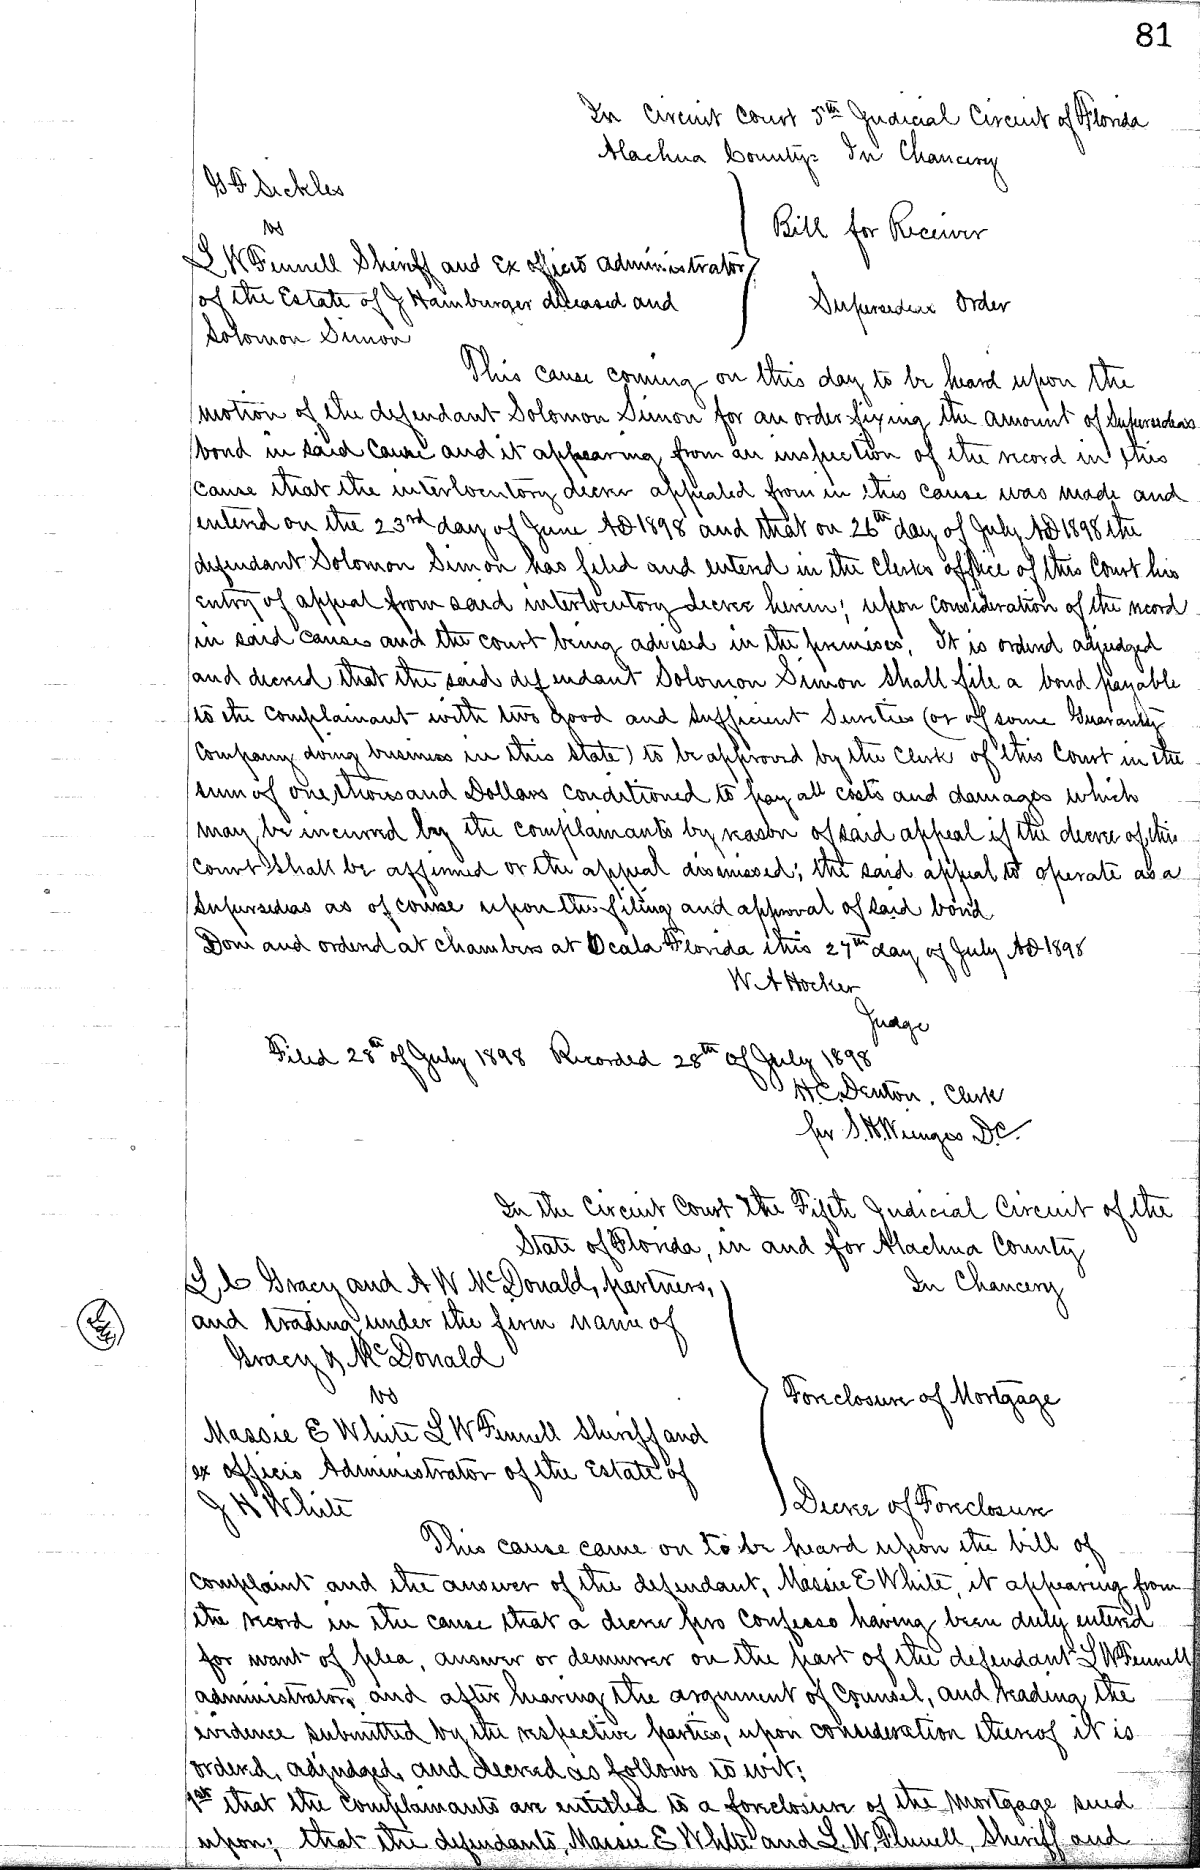 81
In Circuit Court 5th Judicial Circuit of Florida
Alachua County = In Chancery
G F Sickles
vs
L W Fennell Sheriff and Ex officio administrator
of the Estate of J Hamburger deceased and
Solomon Simon
Bill for Receiver
Supersedeas Order
This cause coming on this day to be heard upon the
motion of the defendant Solomon Simon for an order fixing the amount of Supersedeas
bond in said Cause and it appearing from an inspection of the record in this
cause that the interlocutory decree appealed from in this cause was made and
entered on the 23rd day of June AD 1898 and that on 26th day of July AD 1898 the
defendant Solomon Simon has filed and entered in the Clerks office of this Court his
entry of appeal from said interlocutory decree herein; upon consideration of the record
in said causes and the court being advised in the premises, It is ordered adjudged
and decreed that the said defendant Solomon Simon shall file a bond payable
to the Complainant with two good and sufficient Sureties (or of some Guaranty
Company doing business in this State) to be approved by the Clerk of this Court in the
sum of one thousand Dollars conditioned to pay all costs and damages which
may be incurred by the complainants by reason of said appeal if the decree of this
Court shall be affirmed or the appeal dismissed; the said appeal to operate as a
Supersedeas as of course upon the filing and approval of said bond
Done and ordered at Chambers at Ocala Florida this 27th day of July AD 1898
W. A Hocker
Judge
Filed 28th of July 1898 Recorded 28th of July 1898
H. C. Denton, Clerk
per S. H. Wienges D.C.
In the Circuit Court the Fifth Judicial Circuit of the
State of Florida, in and for Alachua County
In Chancery
L, C Gracy and A W McDonald, partners,
and trading under the firm name of
Gracy & McDonald
vs
Massie E White L W Fennell Sheriff and
ex officio Administrator of the Estate of
J H White
Foreclosure of Mortgage
Decree of Foreclosure
This cause came on to be heard upon the bill of
Complaint and the answer of the defendant, Massie E White, it appearing from
the record in the cause that a decree pro Confesso having been duly entered
for want of plea, answer or demurrer on the part of the defendant L W Fennell
administrator, and after hearing the argument of Counsel, and reading the
evidence submitted by the respective parties, upon consideration thereof it is
ordered, adjudged, and decreed as follows to wit:
1st that the Complainants are entitled to a foreclosure of the Mortgage sued
upon; that the defendants, Massie E White and L. W. Fennell, Sheriff and